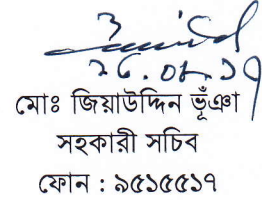 ২৬.০৪.১৭
মোঃ জিয়াউদ্দিন ভূঁঞা
সহকারী সচিব
ফোন : ৯৫১৫৫১৭